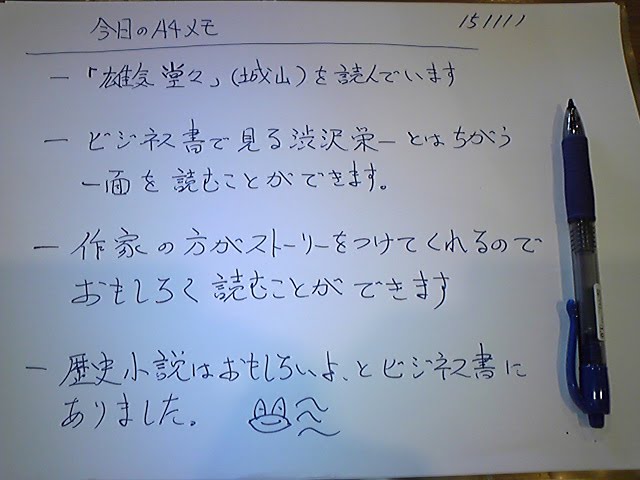 今日のA4メモ 151111
－「雄気堂々」(城山)を読んでいます
－ビジネス書で見る渋沢栄一とはちがう
一面を読むことができます。
－作家の方がストーリーをつけてくれるので
おもしろく読むことができます
－歴史小説はおもしろいよ、とビジネス書に
ありました。